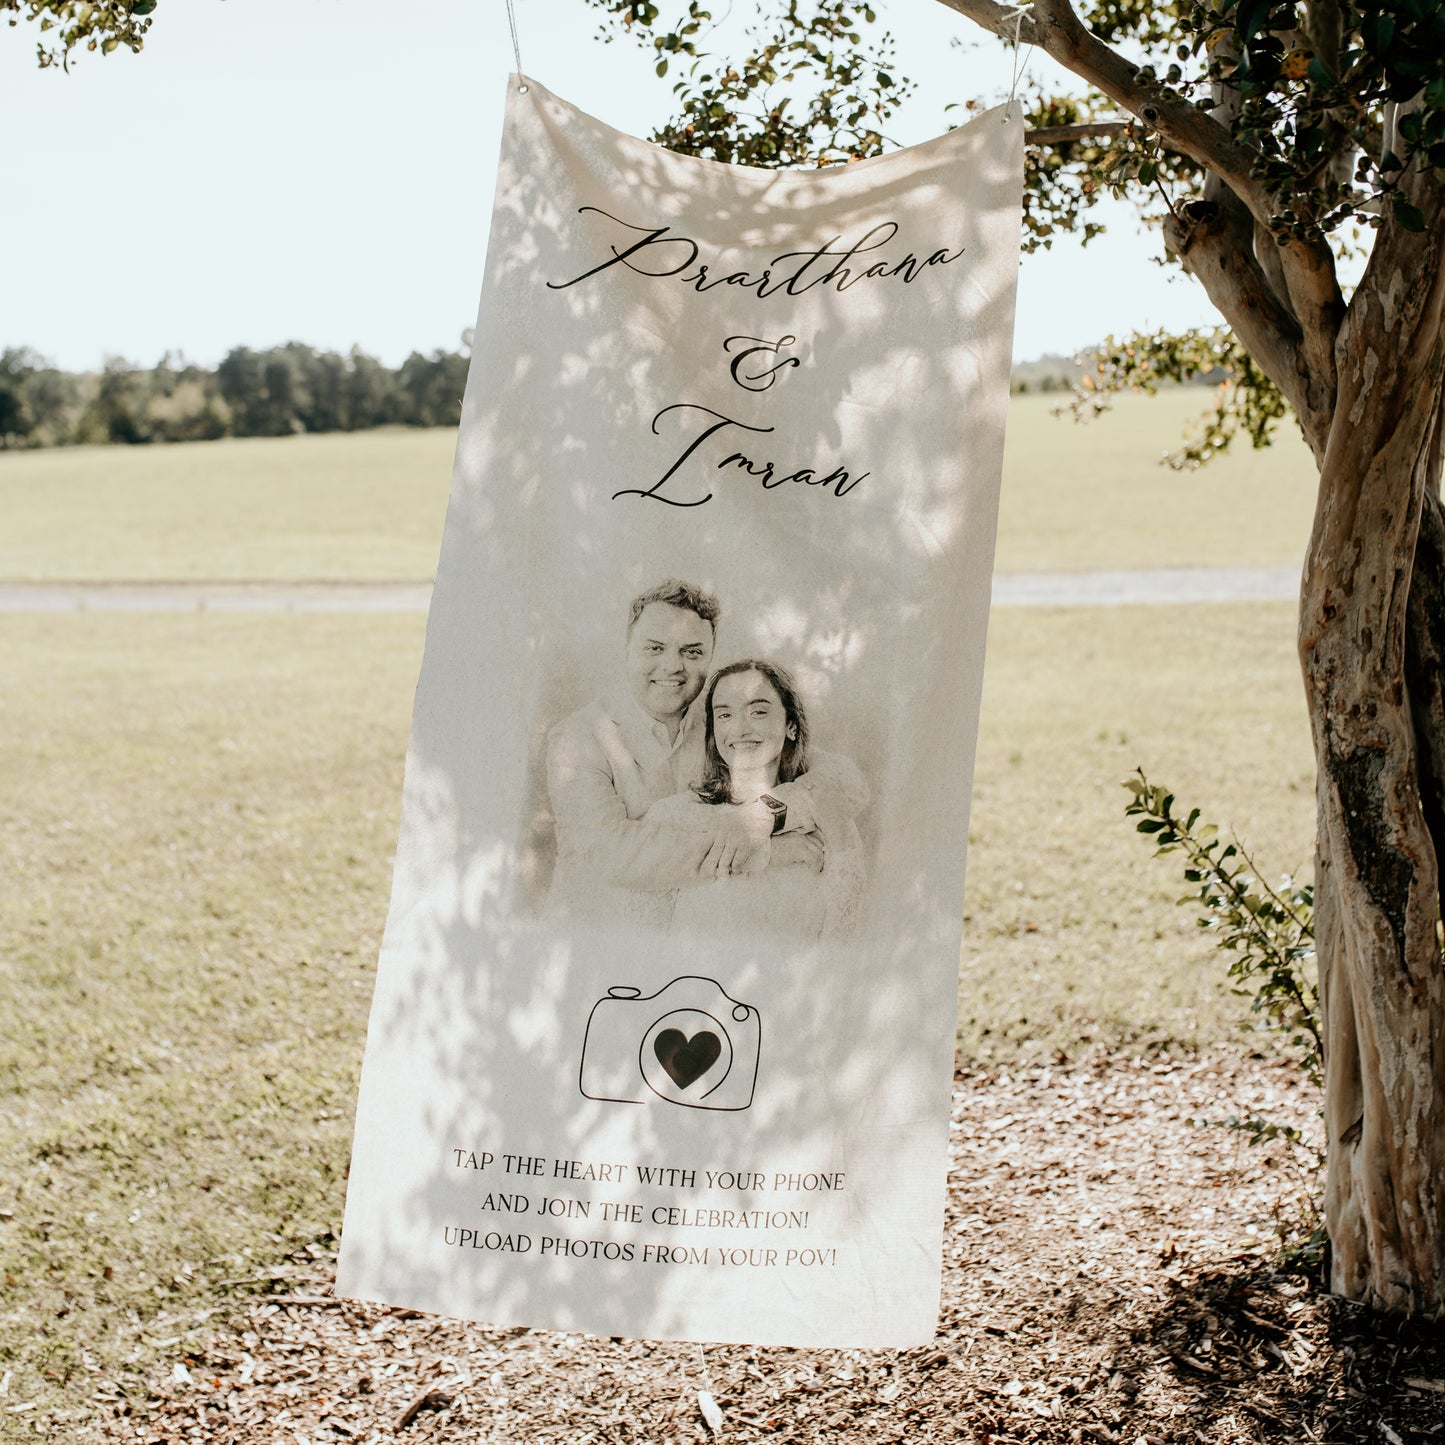 Prarthana
&
Imran
TAP THE HEART WITH YOUR PHONE
AND JOIN THE CELEBRATION!
UPLOAD PHOTOS FROM YOUR POV!